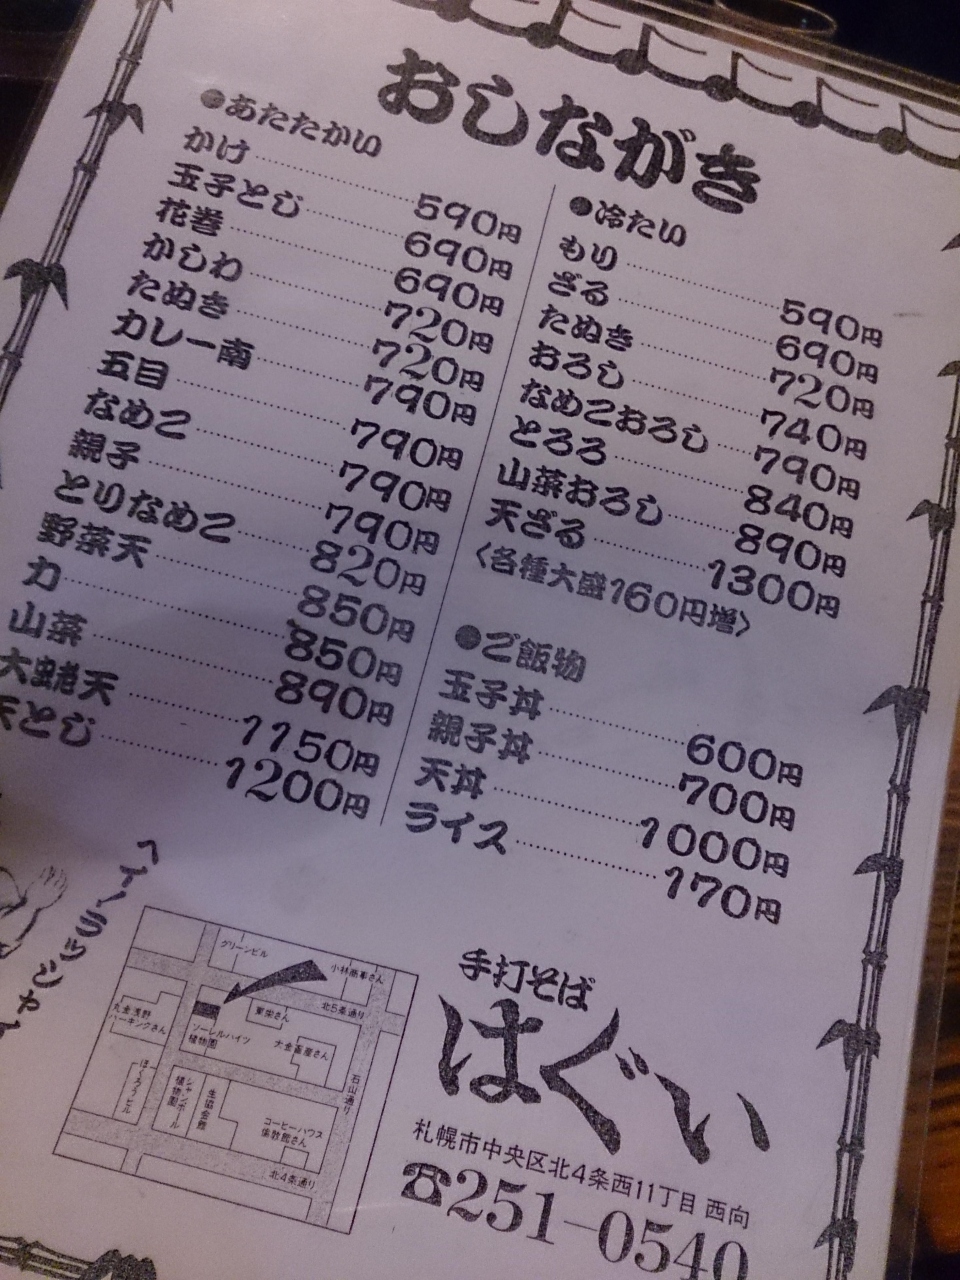 おしながき
●あたたかい
かけ 590円
玉子とじ 690円
花巻 690円
かしわ 720円
たぬき 720円
カレー南 790円
五目 790円
なめこ 790円
親子 790円
とりなめこ 820円
野菜天 850円
力 850円
山菜 890円
大蛯天 1150円
天とじ 1200円
●冷たい
もり 590円
ざる 690円
たぬき 720円
おろし 740円
なめこおろし 790円
とろろ 840円
山菜おろし 890円
天ざる 1300円
〈各種大盛160円増〉
●ご飯物
玉子丼 600円
親子丼 700円
天丼 1000円
ライス 170円
ヘイ!ラッシャイ
グリーンビル
小林商事さん
北5条通り
丸金浅野
パーキングさん
東栄さん
ソーレルハイツ
植物園
大金畜産さん
石山通り
ほくろうビル
シャンボール
植物園
生協会館
コーヒーハウス
北4条通り
手打そば
はぐい
札幌市中央区北4条西11丁目 西向
☎251-0540